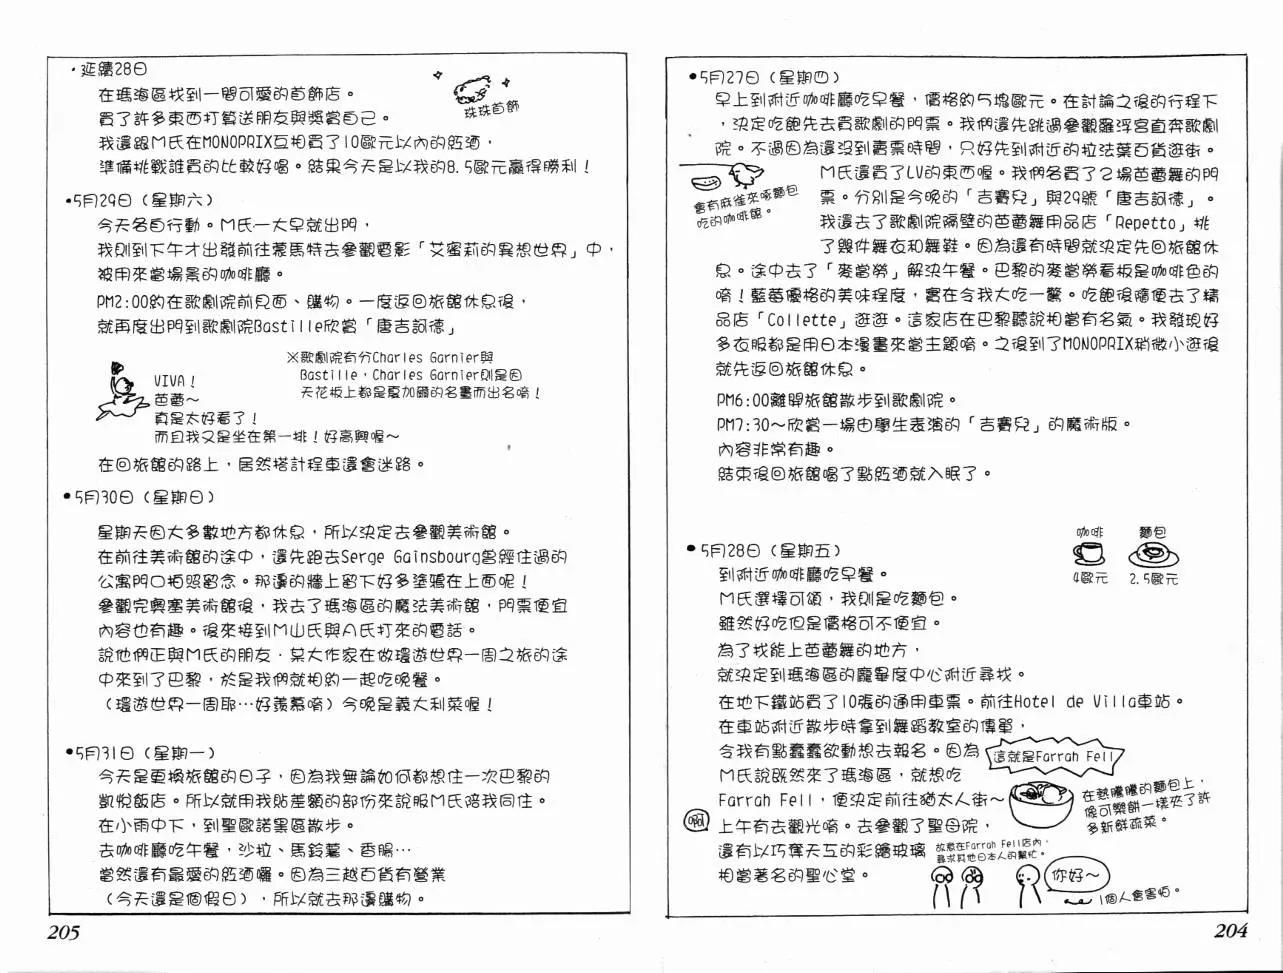 •5月27日（星期四）
早上到附近咖啡廳吃早餐，價格約5塊歐元。在討論之後的行程下
，決定吃飽先去買歌劇的門票。我們還先跳過參觀羅浮宮直奔歌劇
院。不過因為還沒到賣票時間，只好先到附近的拉法葉百貨逛街。
M氏還買了LV的東西喔。我們各買了2場芭蕾舞的門
票。分別是今晚的「吉賽兒」與29號「唐吉訶德」。
我還去了歌劇院隔壁的芭蕾舞用品店「Repetto」挑
了幾件舞衣和舞鞋。因為還有時間就決定先回旅館休
息。途中去了「麥當勞」解決午餐。巴黎的麥當勞看板是咖啡色的
唷！藍莓優格的美味程度，實在令我大吃一驚。吃飽後隨便去了精
品店「Collette」逛逛。這家店在巴黎聽說相當有名氣。我發現好
多衣服都是用日本漫畫來當主題唷。之後到了MONOPRIX稍微小逛後
就先返回旅館休息。
會有麻雀來啄麵包
吃的咖啡館。
PM6:00離開旅館散步到歌劇院。
PM7:30～欣賞一場由學生表演的「吉賽兒」的魔術版。
內容非常有趣。
結束後回旅館喝了點紅酒就入眠了。
•5月28日（星期五）
到附近咖啡廳吃早餐。
M氏選擇可頌，我則是吃麵包。
雖然好吃但是價格可不便宜。
咖啡
4歐元
麵包
2.5歐元
為了找能上芭蕾舞的地方，
就決定到瑪海區的龐畢度中心附近尋找。
在地下鐵站買了10張的通用車票。前往Hotel de Villa車站。
在車站附近散步時拿到舞蹈教室的傳單，
令我有點蠢蠢欲動想去報名。因為
M氏說既然來了瑪海區，就想吃
Farrah Fell，便決定前往猶太人街～
上午有去觀光唷。去參觀了聖母院，
還有以巧奪天工的彩繪玻璃
相當著名的聖心堂。
這就是Farrah Fell
在熱騰騰的麵包上，
像可樂餅一樣夾了許
多新鮮蔬菜。
啊
故意在Farrah Fell店內，
尋求其他日本人的幫忙。
你好～
1個人會害怕。
204
•延續28日
在瑪海區找到一間可愛的首飾店。
買了許多東西打算送朋友與獎賞自己。
我還跟M氏在MONOPRIX互相買了10歐元以內的紅酒，
準備挑戰誰買的比較好喝。結果今天是以我的8.5歐元贏得勝利！
珠珠首飾
•5月29日（星期六）
今天各自行動。M氏一大早就出門，
我則到下午才出發前往蒙馬特去參觀電影「艾蜜莉的異想世界」中，
被用來當場景的咖啡廳。
PM2:00約在歌劇院前見面、購物。一度返回旅館休息後，
就再度出門到歌劇院Bastille欣賞「唐吉訶德」
※歌劇院有分Charles Garnier與
Bastille，Charles Garnier則是因
天花板上都是夏加爾的名畫而出名唷！
VIVA！
芭蕾～
真是太好看了！
而且我又是坐在第一排！好高興喔～
在回旅館的路上，居然搭計程車還會迷路。
•5月30日（星期日）
星期天因大多數地方都休息，所以決定去參觀美術館。
在前往美術館的途中，還先跑去Serge Gainsbourg曾經住過的
公寓門口拍照留念。那邊的牆上留下好多塗鴉在上面呢！
參觀完奧塞美術館後，我去了瑪海區的魔法美術館，門票便宜
內容也有趣。後來接到M山氏與A氏打來的電話。
說他們正與M氏的朋友．某大作家在做環遊世界一周之旅的途
中來到了巴黎，於是我們就相約一起吃晚餐。
（環遊世界一周耶…好羨慕唷）今晚是義大利菜喔！
•5月31日（星期一）
今天是更換旅館的日子，因為我無論如何都想住一次巴黎的
凱悅飯店。所以就用我貼差額的部份來說服M氏陪我同住。
在小雨中下，到聖歐諾黑區散步。
去咖啡廳吃午餐，沙拉、馬鈴薯、香腸…
當然還有最愛的紅酒囉。因為三越百貨有營業
（今天還是個假日），所以就去那邊購物。
205